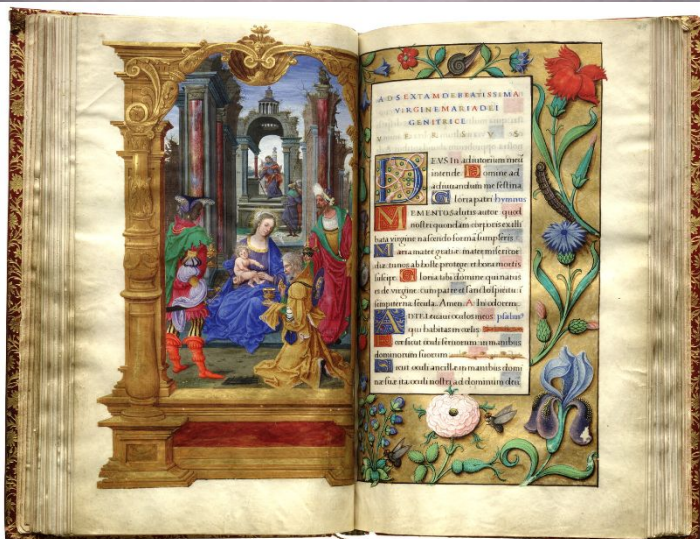 AD SEXTAM DE BEATISSIMA
VIRGINE MARIA DEI
GENITRICE
V R R S V S
DEVS In adiutorium meū
intende Domine ad
adiuuandum me festina
Gloria patri hymnus
MEMENTO salutis autor quod
nostri quondam corporis ex illi
bata virgine nascendo formā sumpseris
Maria mater gratiæ mater misericor
diæ tu nos ab hoste protege et hora mortis
suscipe Gloria tibi domine qui natus
es de virgine cum patre et sancto spiritu ī
sempiterna sæcula Amen A In odorem
AD TE Leuaui oculos meos psalm9
qui habitas in cœlis
Ecce sicut oculi seruorum in manibus
dominorum suorum
Sicut oculi ancillæ in manibus domi
næ suæ ita oculi nostri ad dominum deū